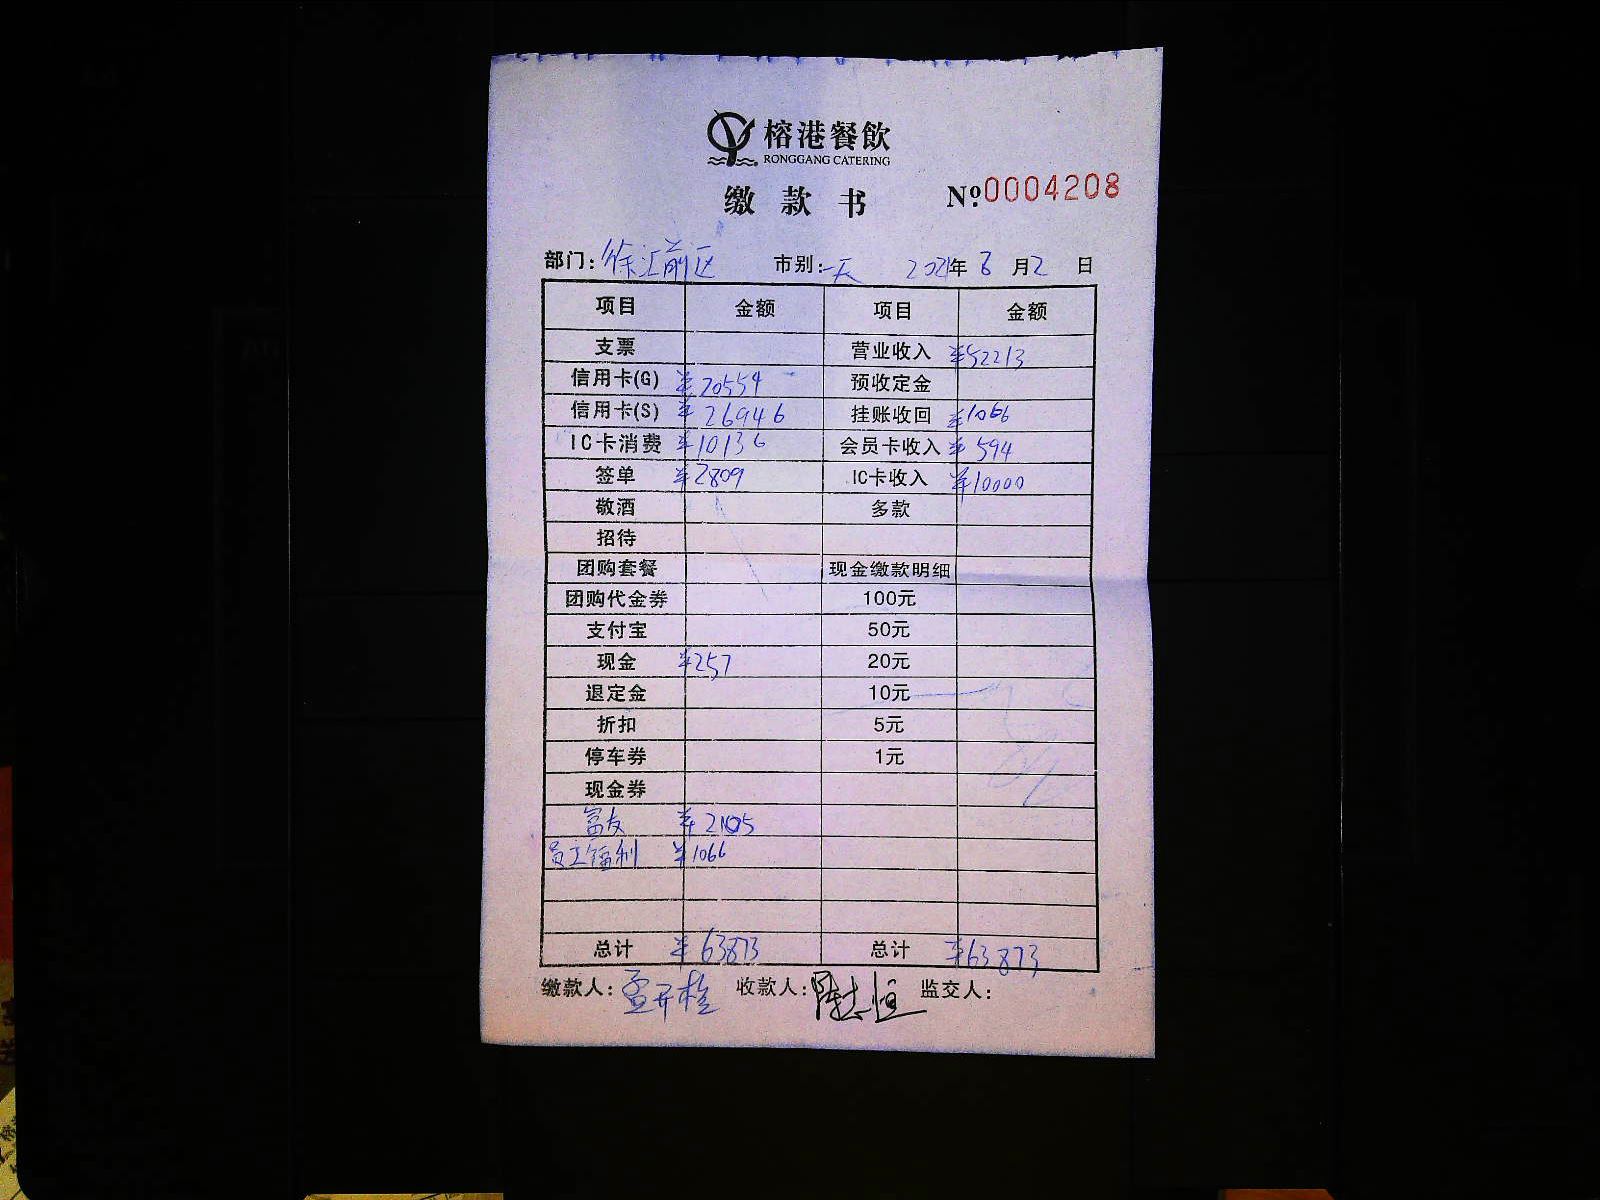 榕港餐飲
RONGGANG CATERING
缴款书 №0004208
部门：徐汇前区 市别：一天 2021年8月2日
项目 金额 项目 金额
支票 营业收入 ¥52213
信用卡(G) ¥20554 预收定金
信用卡(S) ¥26946 挂账收回 ¥1066
IC卡消费 ¥10136 会员卡收入 ¥594
签单 ¥2809 IC卡收入 ¥10000
敬酒 多款
招待
团购套餐 现金缴款明细
团购代金券 100元
支付宝 50元
现金 ¥257 20元
退定金 10元
折扣 5元
停车券 1元
现金券
富友 ¥2105
员工福利 ¥1066
总计 ¥63873 总计 ¥63873
缴款人：孟开 收款人：陈志恒 监交人：